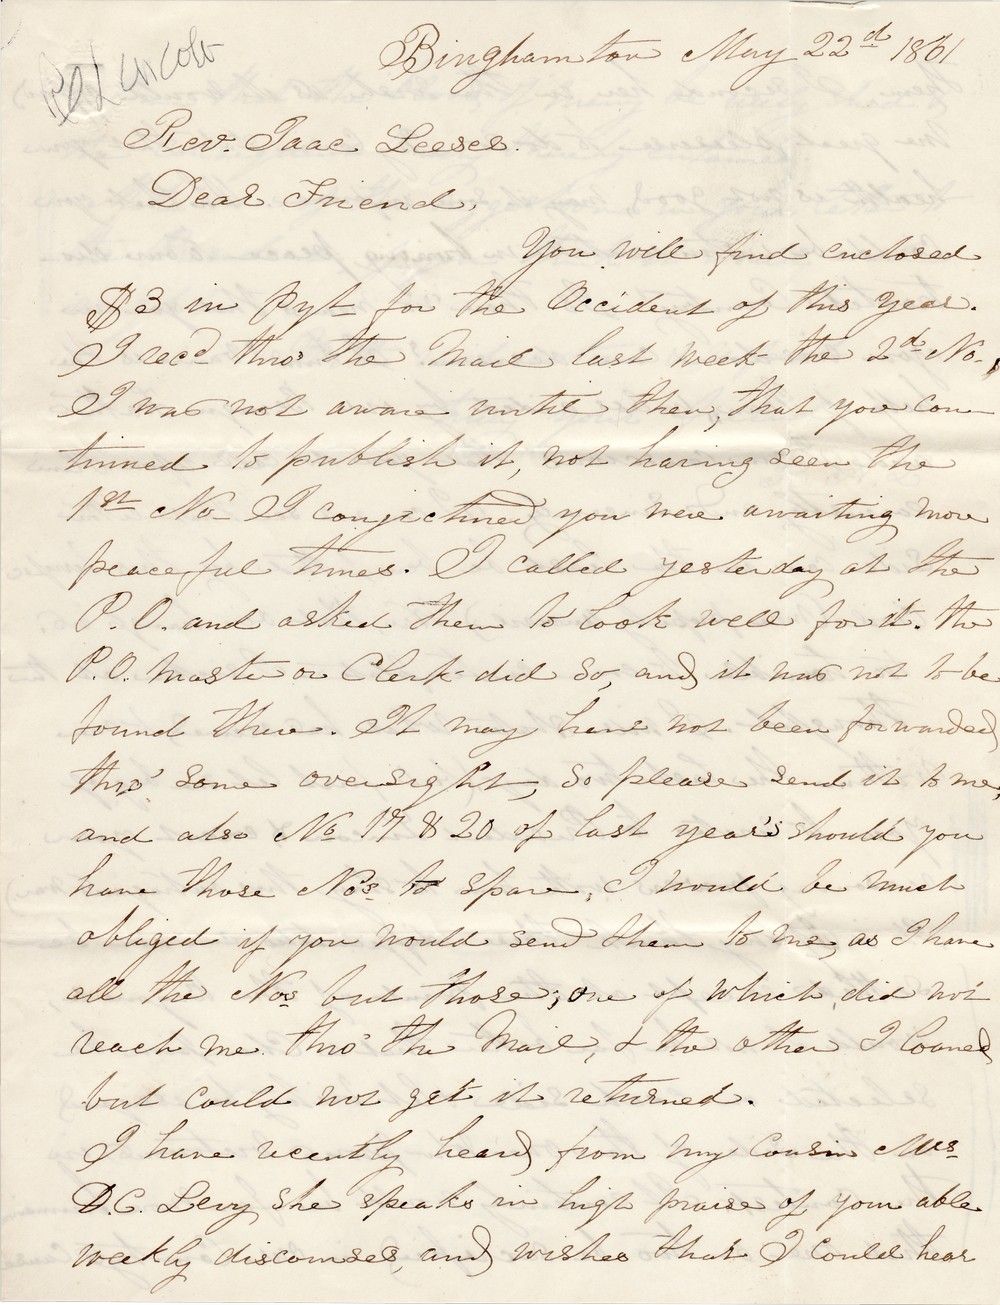 Binghamton May 22d 1861
Rev. Isaac Leeser.
Dear Friend,
You will find enclosed
$3 in Pyt for the Occident of this year.
I recd thro' the Mail last week the 2d No.,
I was not aware until then, that you con
tinued to publish it, not having seen the
1st No- I conjectured you were awaiting more
peaceful times. I called yesterday at the
P.O. and asked them to look well for it. the
P.O. Master or Clerk did so, and it was not to be
found there. It may have not been forwarded
thro' some oversight, so please send it to me,
and also No 17 & 20 of last year's should you
have those Nos to spare, I would be much
obliged if you would send them to me, as I have
all the Nos but those; one of which did not
reach me thro' the Mail, & the other I loaned
but could not get it returned.
I have recently heard from my Cousin Mrs
D.C. Levy she speaks in high praise of your able
weekly discourses, and wishes that I could hear